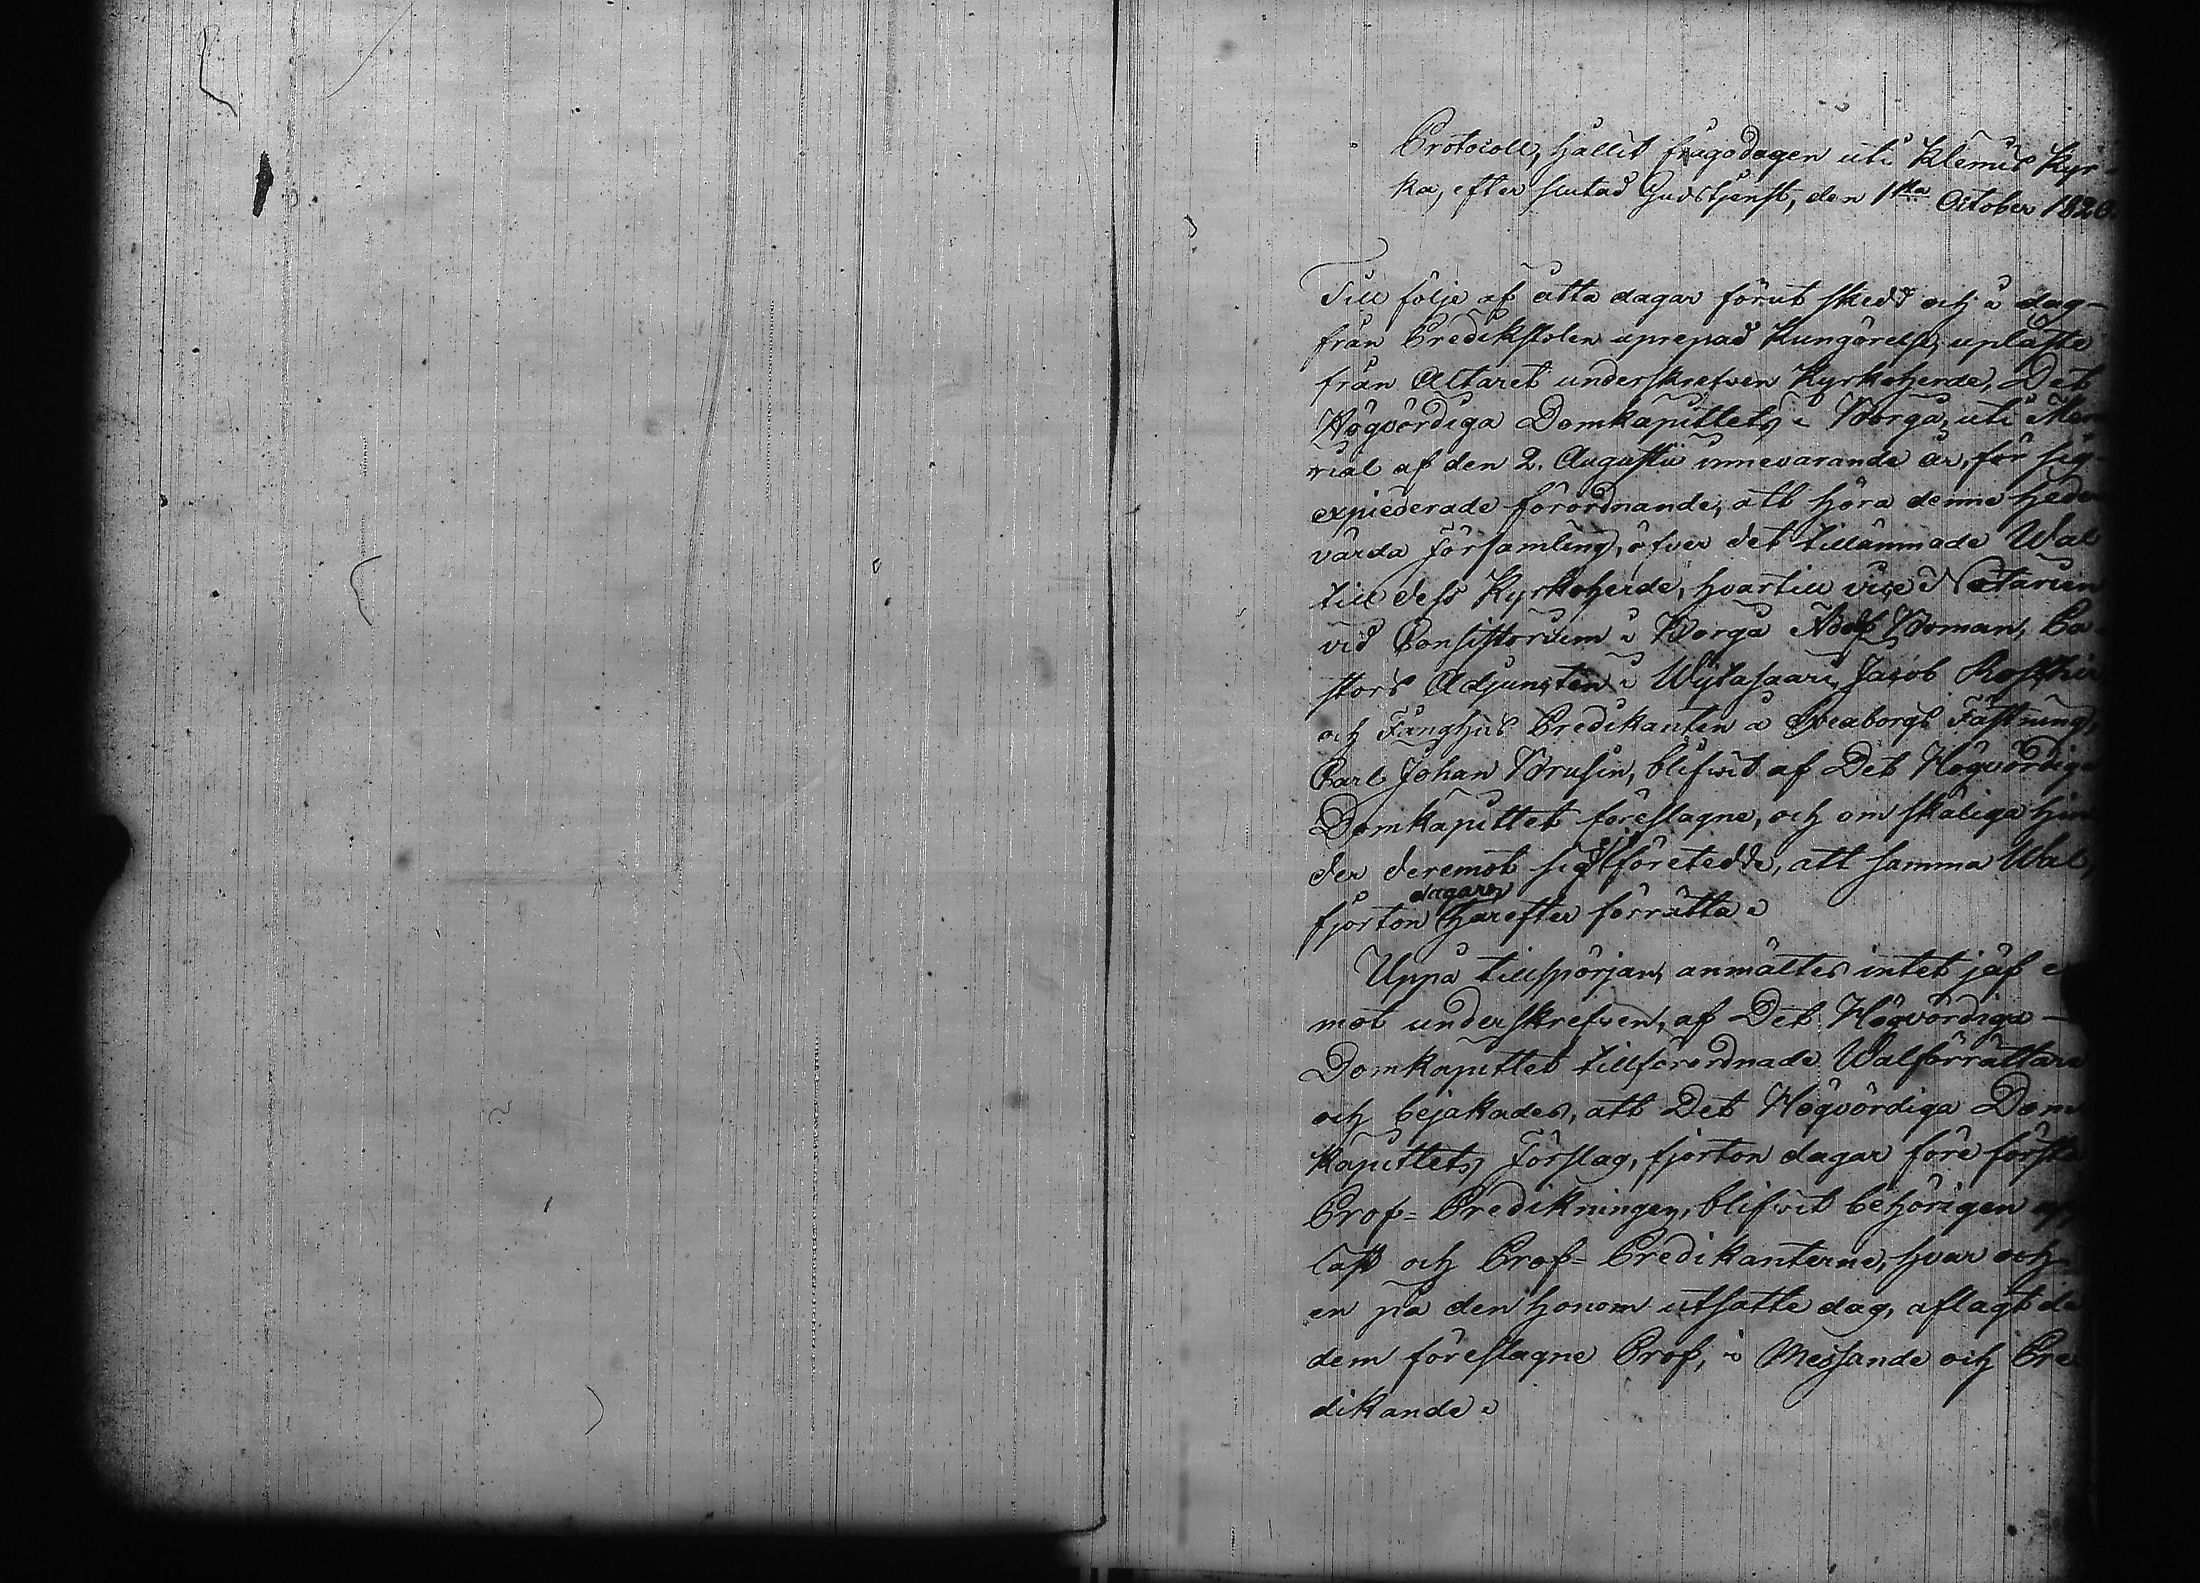 Protocoll, hållit frågodagen uti Klemis Kyr-
ka, efter slutad Gudstjenst, den 1sta October 1820.
Till följe af åtta dagar förut skedd och i dag
från Predikstolen uprepad Kungörelse, upläste
från Altaret underskrefven Kyrkoherde, Det
Högvördiga Domkapittlets i Borgå, uti Mem
rial af den 2. Augusti innevarande år, för sig
expiederade förordnande, att höra denne heder
värda Församling, öfver det tillämnade Wal
till dess Kyrkoherde, hvartill vice Notarien
vid Consistorium i Borgå Adolf Boman, Pa-
stors Adjuncten i Wijtasaari, Jacob
och Fånghus Predikanten å Sveaborgs Fästning,
Carl Johan Brusin, blifvit af Det Högvördiga
Domkapittlet föreslagne, och om skäliga hin
der deremot sig ej företedde, att samma Wal,
fjorton dagar härefter förrätta.
Uppå tillspörjan, anmältes intet jäf e
mot underskrefven, af Det Högvördiga
Domkapittlet tillförordnade Walförrättare
och bejakades, att Det Högvördiga Dom
kapittlets Förslag, fjorton dagar före första
Prof-Predikningen, blifvit behörigen upp
läst och Prof-Predikanterne, hvar och
en på den honom utsatte dag, aflagt de
dem föreslagne Prof, i Messande och Pre
dikande.